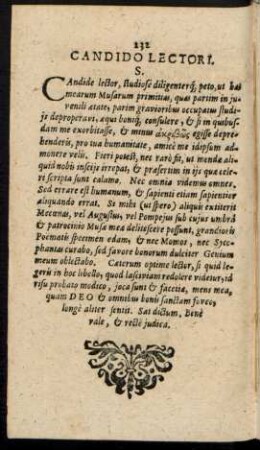 232
CANDIDO LECTORI.
S.
CAndide lector, studiosè diligenterq́; peto, ut has
mearum Musarum primitias, quas partim in ju-
venili ætate, partim gravioribus occupatus studiis
deproperavi, æqui boniq́; consulere, & si in quibus-
dam me exorbitasse, & minus ἀκριβῶς egisse depre-
henderis, pro tua humanitate, amicè me idipsum ad-
monere velis. Fieri potest, nec rarò fit, ut mendæ ali-
quid nobis insciis irrepat, & præsertim in iis quæ cele-
ri scripta sunt calamo. Nec omnia videmus omnes.
Sed errare est humanum, & sapienti etiam sapienter
aliquando errat. Si mihi (ut spero) aliquis extiterit
Mecœnas, vel Augustus, vel Pompejus sub cujus umbrâ
& patrocinio Musa mea delitescere possunt, grandioris
Poëmatis specimen edam, & nec Momos, nec Syco-
phantas curabo, sed favore bonorum dulciter Genium
meum oblectabo. Cæterum optime lector, si quid le-
geris in hoc libello, quod lasciviam redolere videtur, id
risu probato modico, joca sunt & facetiæ, mens mea,
quam DEO & omnibus bonis sanctam foveo,
longè aliter sentit. Sat dictum, Benè
vale, & rectè judica.